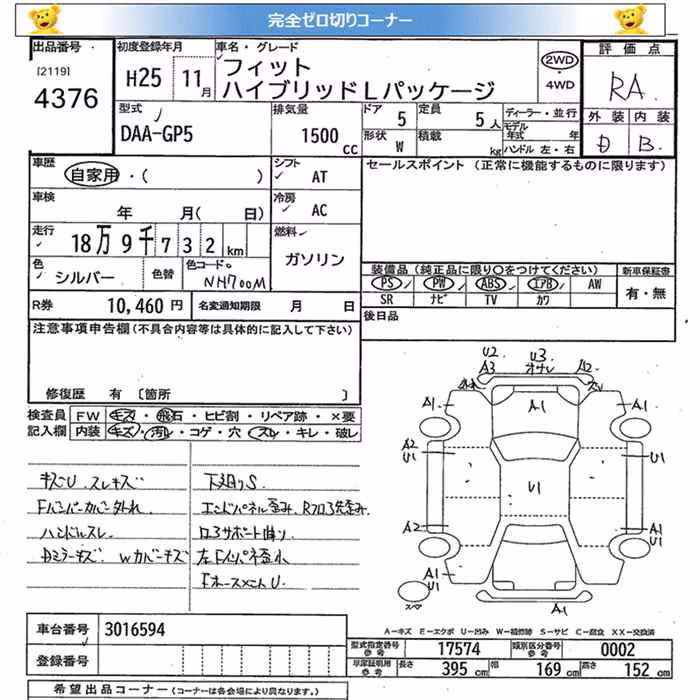 完全ゼロ切りコーナー
出品番号
[2119]
4376
初度登録年月
H25 11月
車名・グレード
フィット
ハイブリッドLパッケージ
2WD
・
4WD
評価点
RA
外装 内装
D B
型式
DAA-GP5
排気量
1500 cc
ドア 5
定員 5人
形状 W
積載 kg
ディーラー・並行
モデル年式 年
ハンドル 左・右
車歴
自家用・( )
シフト
AT
セールスポイント (正常に機能するものに限ります)
車検
年 月( 日)
冷房
AC
走行
18万9千732km
燃料
ガソリン
色
シルバー
色替
色コードNo.
NH700M
装備品 (純正品に限り○をつけてください)
PS PW ABS エアB AW
SR ナビ TV カワ
新車保証書
有・無
R券 10,460円
名変通知期限 月 日
後日品
注意事項申告欄(不具合内容等は具体的に記入して下さい)
修復歴 有 〔箇所 〕
検査員
記入欄
FW キズ・飛石・ヒビ割・リペア跡・×要
内装 キズ・汚レ・コゲ・穴・スレ・キレ・破レ
キズU スレキズ
Fバンパーカバー外れ
ハンドルスレ
Dミラーキズ Wカバーキズ
下廻りS
エンドパネル歪み、Rフロア先歪み
ロアサポート曲り
左Fインパネ歪み
U2 U3
A3 オサレ A2
A1 A1 A1
A2 U1
U1 U1
A2 A1 U1
A1 U1 A1
A1
スペア
A-キズ E-エクボ U-凹み W-補修跡 S-サビ C-腐食 XX-交換済
車台番号 3016594
登録番号
型式指定番号 参考 17574
類別区分番号 参考 0002
車庫証明用 参考 長さ 395cm 幅 169cm 高さ 152cm
希望出品コーナー (コーナーは各会場により異なります。)